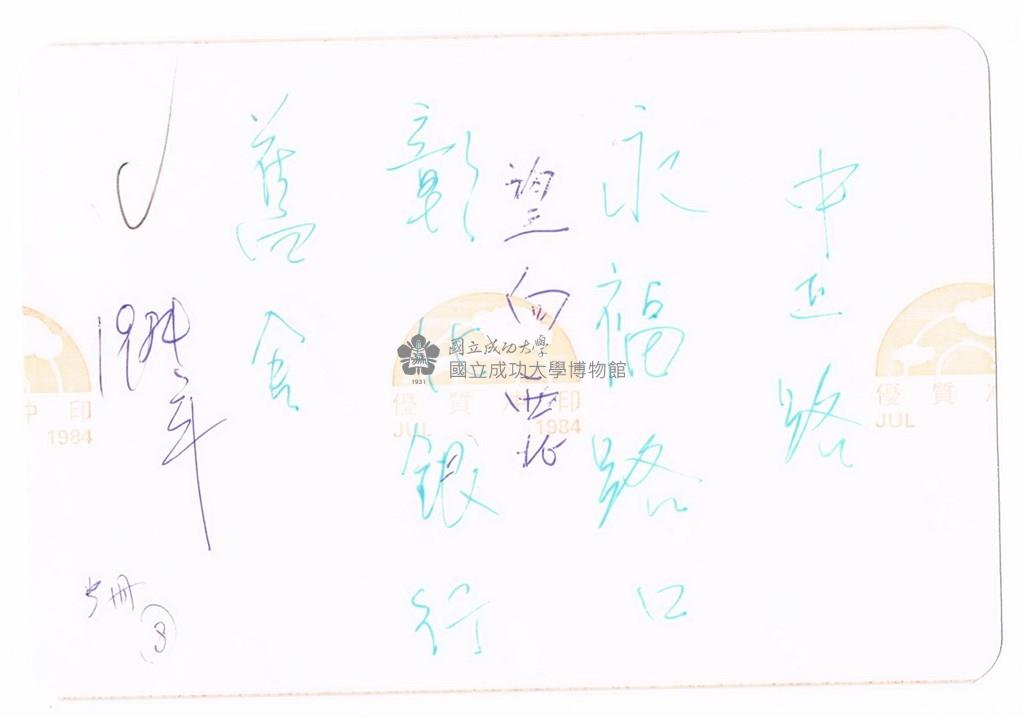 中正路
永福路口
望向西北
彰化銀行
舊舍
1984年
冊
8
國立成功大學
國立成功大學博物館
1931
中印
1984
優質沖印
JUL 1984
優質沖
JUL